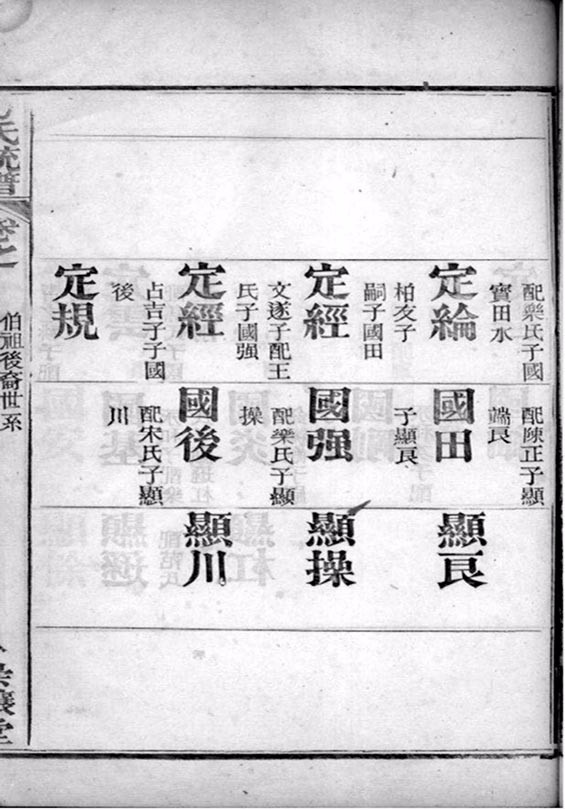 配樂氏子國
實田水
定綸
柏友子
嗣子國田
定經
文遂子配王
氏子國强
定經
占吉子子國
後
定規
配陳正子顯
端良
國田
子顯良
國强
配樂氏子顯
操
國後
配宋氏子顯
川
顯良
顯操
顯川
氏統譜
卷之
伯祖後裔世系
堂